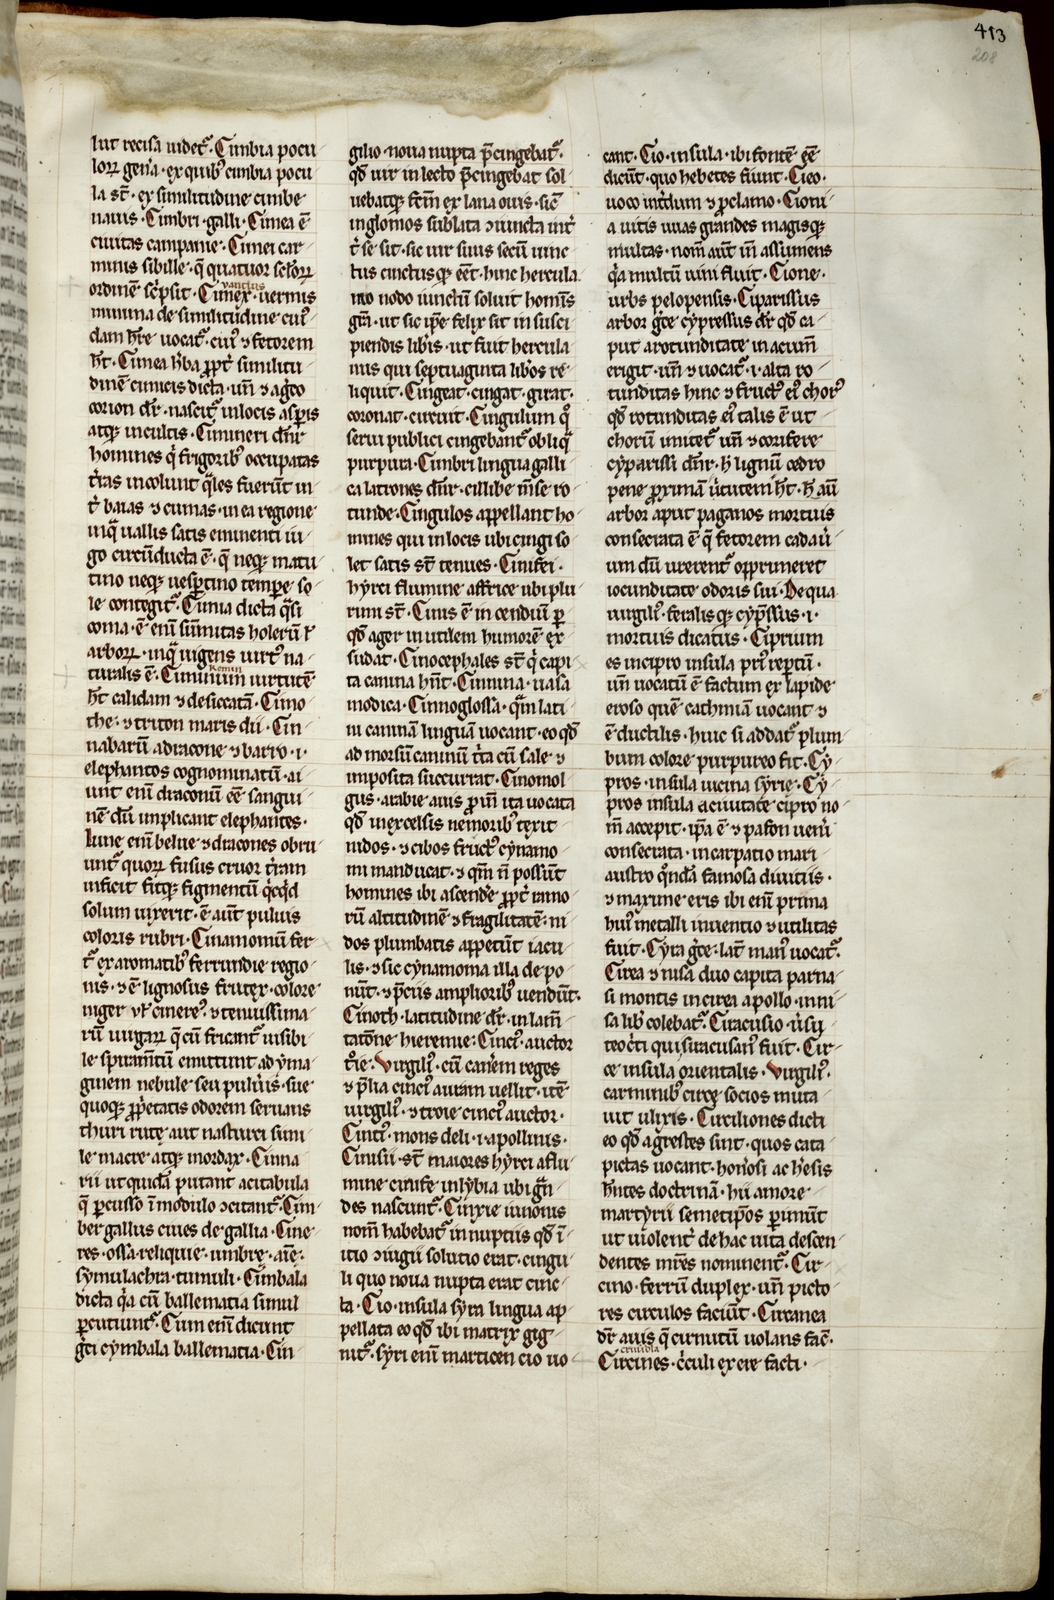 413
208
lut recisa uidet᷑. Cimbia pocu
loꝝ gen̄a. ex quibꝰ cimbia pocu
la st̄. ex similitudine cimbe
nauis. Cimbri. galli. Cimea ē
ciuitas campanie. Cimei car
minis sibille. q̄ quatuor seloꝝ
ordinē sc̄psit. Cimex. uermis
vantlus
minima de similitudine cuiꝰ
dam hr̄e uocat᷑. cuiꝰ ⁊ fetorem
ht̄. Cimea hb̄a ꝓpt̄ similitu
dinē cimicis dicta. un̄ ⁊ agr̄o
corion dr̄. nascit᷑ in locis aspis
atqꝫ incultis. Cimineri dn̄r
homines q̄ frigoribꝰ occupatas
tr̄as incolunt q̄les fuerūt in
t̄ baias ⁊ cumas. in ea regione
inq̄ uallis satis eminenti iu
go circūducta ē. q̄ neqꝫ matu
tino neqꝫ uesꝑtino tempe so
le contegit᷑. Cimia dicta q̄si
coma. ē eni sūmitas holerū ł
arboꝝ. inq̄ uigens uirtꝰ na
turalis ē. Ciminum uirtutē
Kemin
ht̄ calidam ⁊ desiccatā. Cimo
the. ⁊ triton maris dii. Cin
nabarū a dracone ⁊ barro .i.
elephantos cognominatū. ai
unt enī draconū eē sangui
nē dū implicant elephantes.
Iune enī belue ⁊ dracones obru
unt᷑ quoꝝ fusus cruor tr̄am
inficit fitqꝫ figmentū q̄cq̄d
solum uixerit. ē aut̄ puluis
coloris rubri. Cinamomū fer
t᷑ ex aromatibꝰ ferrundie regio
nis. ⁊ ē lignosus frutex. colore
niger ul̄ cinereꝰ. ⁊ tenuissima
rū uirgaꝝ q̄ cū fricant᷑ uisibi
le spiramtū emittunt ad yma
ginem nebule seu pulūis. sue
quoqꝫ ꝓpetatis odorem seruans
thuri rute aut nasturci simi
le macre atqꝫ mordax. Cinna
rii ut quidā putant acitabula
q̄ ꝑcusso ī modulo ↄcitant᷑. Cim
ber gallus ciues de gallia. Cine
res. ossa. reliquie. umbre. aīe.
symulachra. tumuli. Cimbala
dicta q̄a cū ballematia simul
ꝑcutiunt᷑. Cum enī dicunt
gr̄ci cymbala ballematia. Cin
gilio noua nupta p̄cingebat᷑.
qd̄ uir in lecto p̄cingebat sol
uebatqꝫ fcīm ex lana ouis. sic̄
inglomos sublata ⁊ iuncta int̄
t̄ se sit. sic uir suus secū iunc
tus cinctusqꝫ eēt. hinc hercula
neo nodo iunctū soluit homīs
grā. ut sic ipe felix sit in susci
piendis libīs. ut fuit hercula
nius qui septuaginta libōs re
liquit. Cingeat. cingat. girat.
coronat. circuit. Cingulum qꝰ
serui publici cingebant᷑ obliq̄
purpura. Cimbri lingua galli
ca latrones dn̄r. cillibe mn̄se ro
tunde. Cingulos appellant ho
mines qui in locis ubi cingi so
let satis st̄ tenues. Cinifei.
hyrci flumine affrice ubi plu
rimi st̄. Cinis ē in cendiū ꝑ
qd̄ ager inutilem humorē ex
sudat. Cinocephales st̄ q̄ capi
ta canina hn̄t. Cinnina. uasa
modica. Cinnoglossa. q̄m lati
ni caninā linguam uocant. eo qd̄
ad morsū caninū tr̄ta cū sale ⁊
imposita succurrat. Cinomol
gus. arabie auis ꝓin ita uocata
qd̄ in excelsis nemoribꝰ texit
nidos. ⁊ cibos fructꝰ cynamo
mi manducat. ⁊ qm̄ n̄ possūt
homines ibi ascende ꝓpt̄ ramo
rū altitudinē ⁊ fragilitatē. ni
dos plumbatis appetūt iacu
lis. ⁊ sic cynamoma illa depo
nūt. ⁊ p̄ciis amplioribꝰ uendūt.
Cinoth. latitudine dr̄. in lam̄
tatōne hieremie. Cinciꝰ. auctor
tr̄ie. Virgilꝰ. cū can̄em reges
⁊ p̄lia cinciꝰ aurem uellit. itē
uirgilꝰ. ⁊ troie cinciꝰ auctor.
Cintꝰ. mons deli .i. apollinis.
Cinisii. st̄ maiores hyrci a flu
mine cinife in lybia ubi gn̄
des nascunt᷑. Cinxie iunonis
nom̄ habebat᷑ in nuptiis qd̄ ī
itio ↄiugii solucio erat. cingu
li quo noua nupta erat cinc
ta. Cio. insula syra lingua ap
pellata eo qd̄ ibi matrix gig
nit᷑. syri enī marticen cio uo
cant. Cio. insula. ibi fontē eē
dicūt. quo hebetes fiunt. Cieo.
uoco int̄dum ⁊ ꝓclamo. Cioni
a uitis uuas grandes magisqꝫ
multas. nom̄ aut̄ in assumens
q̄a multū uini fluit. Cione.
urbs pelopensis. Ciparissus
arbor gr̄ce cypressus dr̄ qd̄ ca
put a rotunditate in acum̄
erigit. un̄ ⁊ uocat᷑ .i. alta ro
tunditas hinc ⁊ fructꝰ eiꝰ chorꝰ
qd̄ rotunditas eiꝰ talis ē ut
chorū imitet᷑ un̄ ⁊ corifere
cyparissi dn̄r. h̄ lignū cedro
pene ꝓximā ūtutem ht̄. h̄ aū
arbor aput paganos mortuis
consecrata ē q̄ fetorem cadaū
um dū urerent᷑ opprimeret
iocunditate odoris sui. De qua
uirgilꝰ. feralisqꝫ cypssus .i.
mortuis dicatus. Ciprium
es in cipro insula priꝰ reptū.
un̄ uocatū ē factum ex lapide
eroso quē cathmiam uocant ⁊
ē ductilis. huic si addat᷑ plum
bum colore purpureo fit. Cy
pros. insula uicina syrie. Cy
pros insula a ciuitate cipro no
m̄ accepit. ipa ē ⁊ pafon uenī
consecrata. in carpatio mari
austro qn̄da famosa diuitiis.
⁊ maxime eris ibi enī prima
huiꝰ metalli inuentio ⁊ utilitas
fuit. Cyra gr̄ce. lat̄ manꝰ uocat᷑.
Cirea ⁊ nisa duo capita parna
si montis in cirea apollo in ni
sa lib̄ colebat᷑. Ciracusio. ūsu
teocr̄ti qui siracusanꝰ fuit. Cir
ce insula orientalis. Virgilꝰ.
carminibꝰ circe socios muta
uit ulixis. Circiliones dicti
eo qd̄ agrestes sint. quos cata
pictas uocant. honōsi ac hēsis
hn̄tes doctrinā. hii amore
martyrii semetipos ꝑimūt
ut uiolent̄ de hac uita descen
dentes mr̄es nominent᷑. Cir
cino. ferrū duplex. un̄ picto
res circulos faciūt. Circanea
dr̄ auis q̄ circuitū uolans fac̄.
Circines. cc̄uli ex ere facti.
criniola